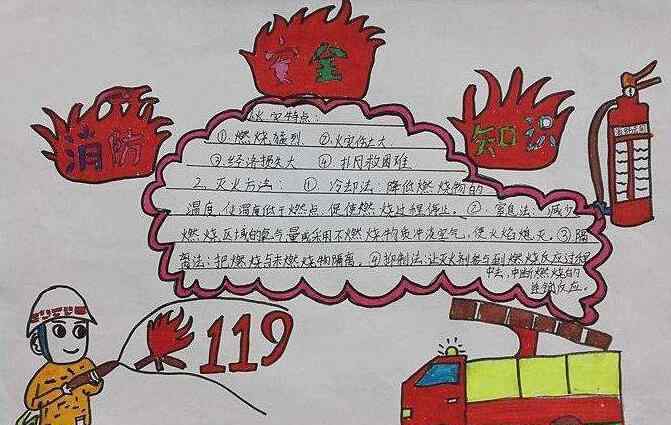 安全
消防
知识
火灾特点:
①燃烧猛烈 ②火灾伤亡大
③经济损失大 ④救困难
2、灭火方法: ①、冷却法:降低燃烧物的
温度,使温度低于燃点,促使燃烧过程停止。②、窒息法:减少
燃烧区域的氧气量或采用不燃烧物质冲淡空气,使火焰熄灭。③隔
离法:把燃烧与未燃烧物隔离。④抑制法:让灭火剂参与到燃烧反应过程
中去,中断燃烧的
连锁反应。
119